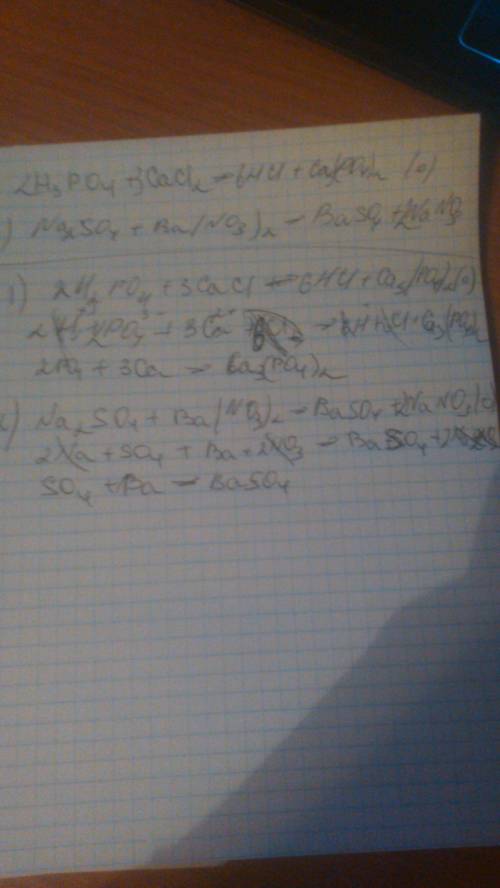 2H3PO4 + 3CaCl2 = 6HCl + Ca3(PO4)2 (o)
) Na2SO4 + Ba(NO3)2 = BaSO4 + 2NaNO3
1) 2H3PO4 + 3CaCl = 6HCl + Ca3(PO4)2(o)
PO4 + 3Ca Ca3(PO4)2
2PO4 + 3Ca = Ca3(PO4)2
Na2SO4 + Ba(NO3)2 = BaSO4 + 2NaNO3
2Na + SO4 + Ba + 2NO3 = BaSO4 +
SO4 + Ba = BaSO4